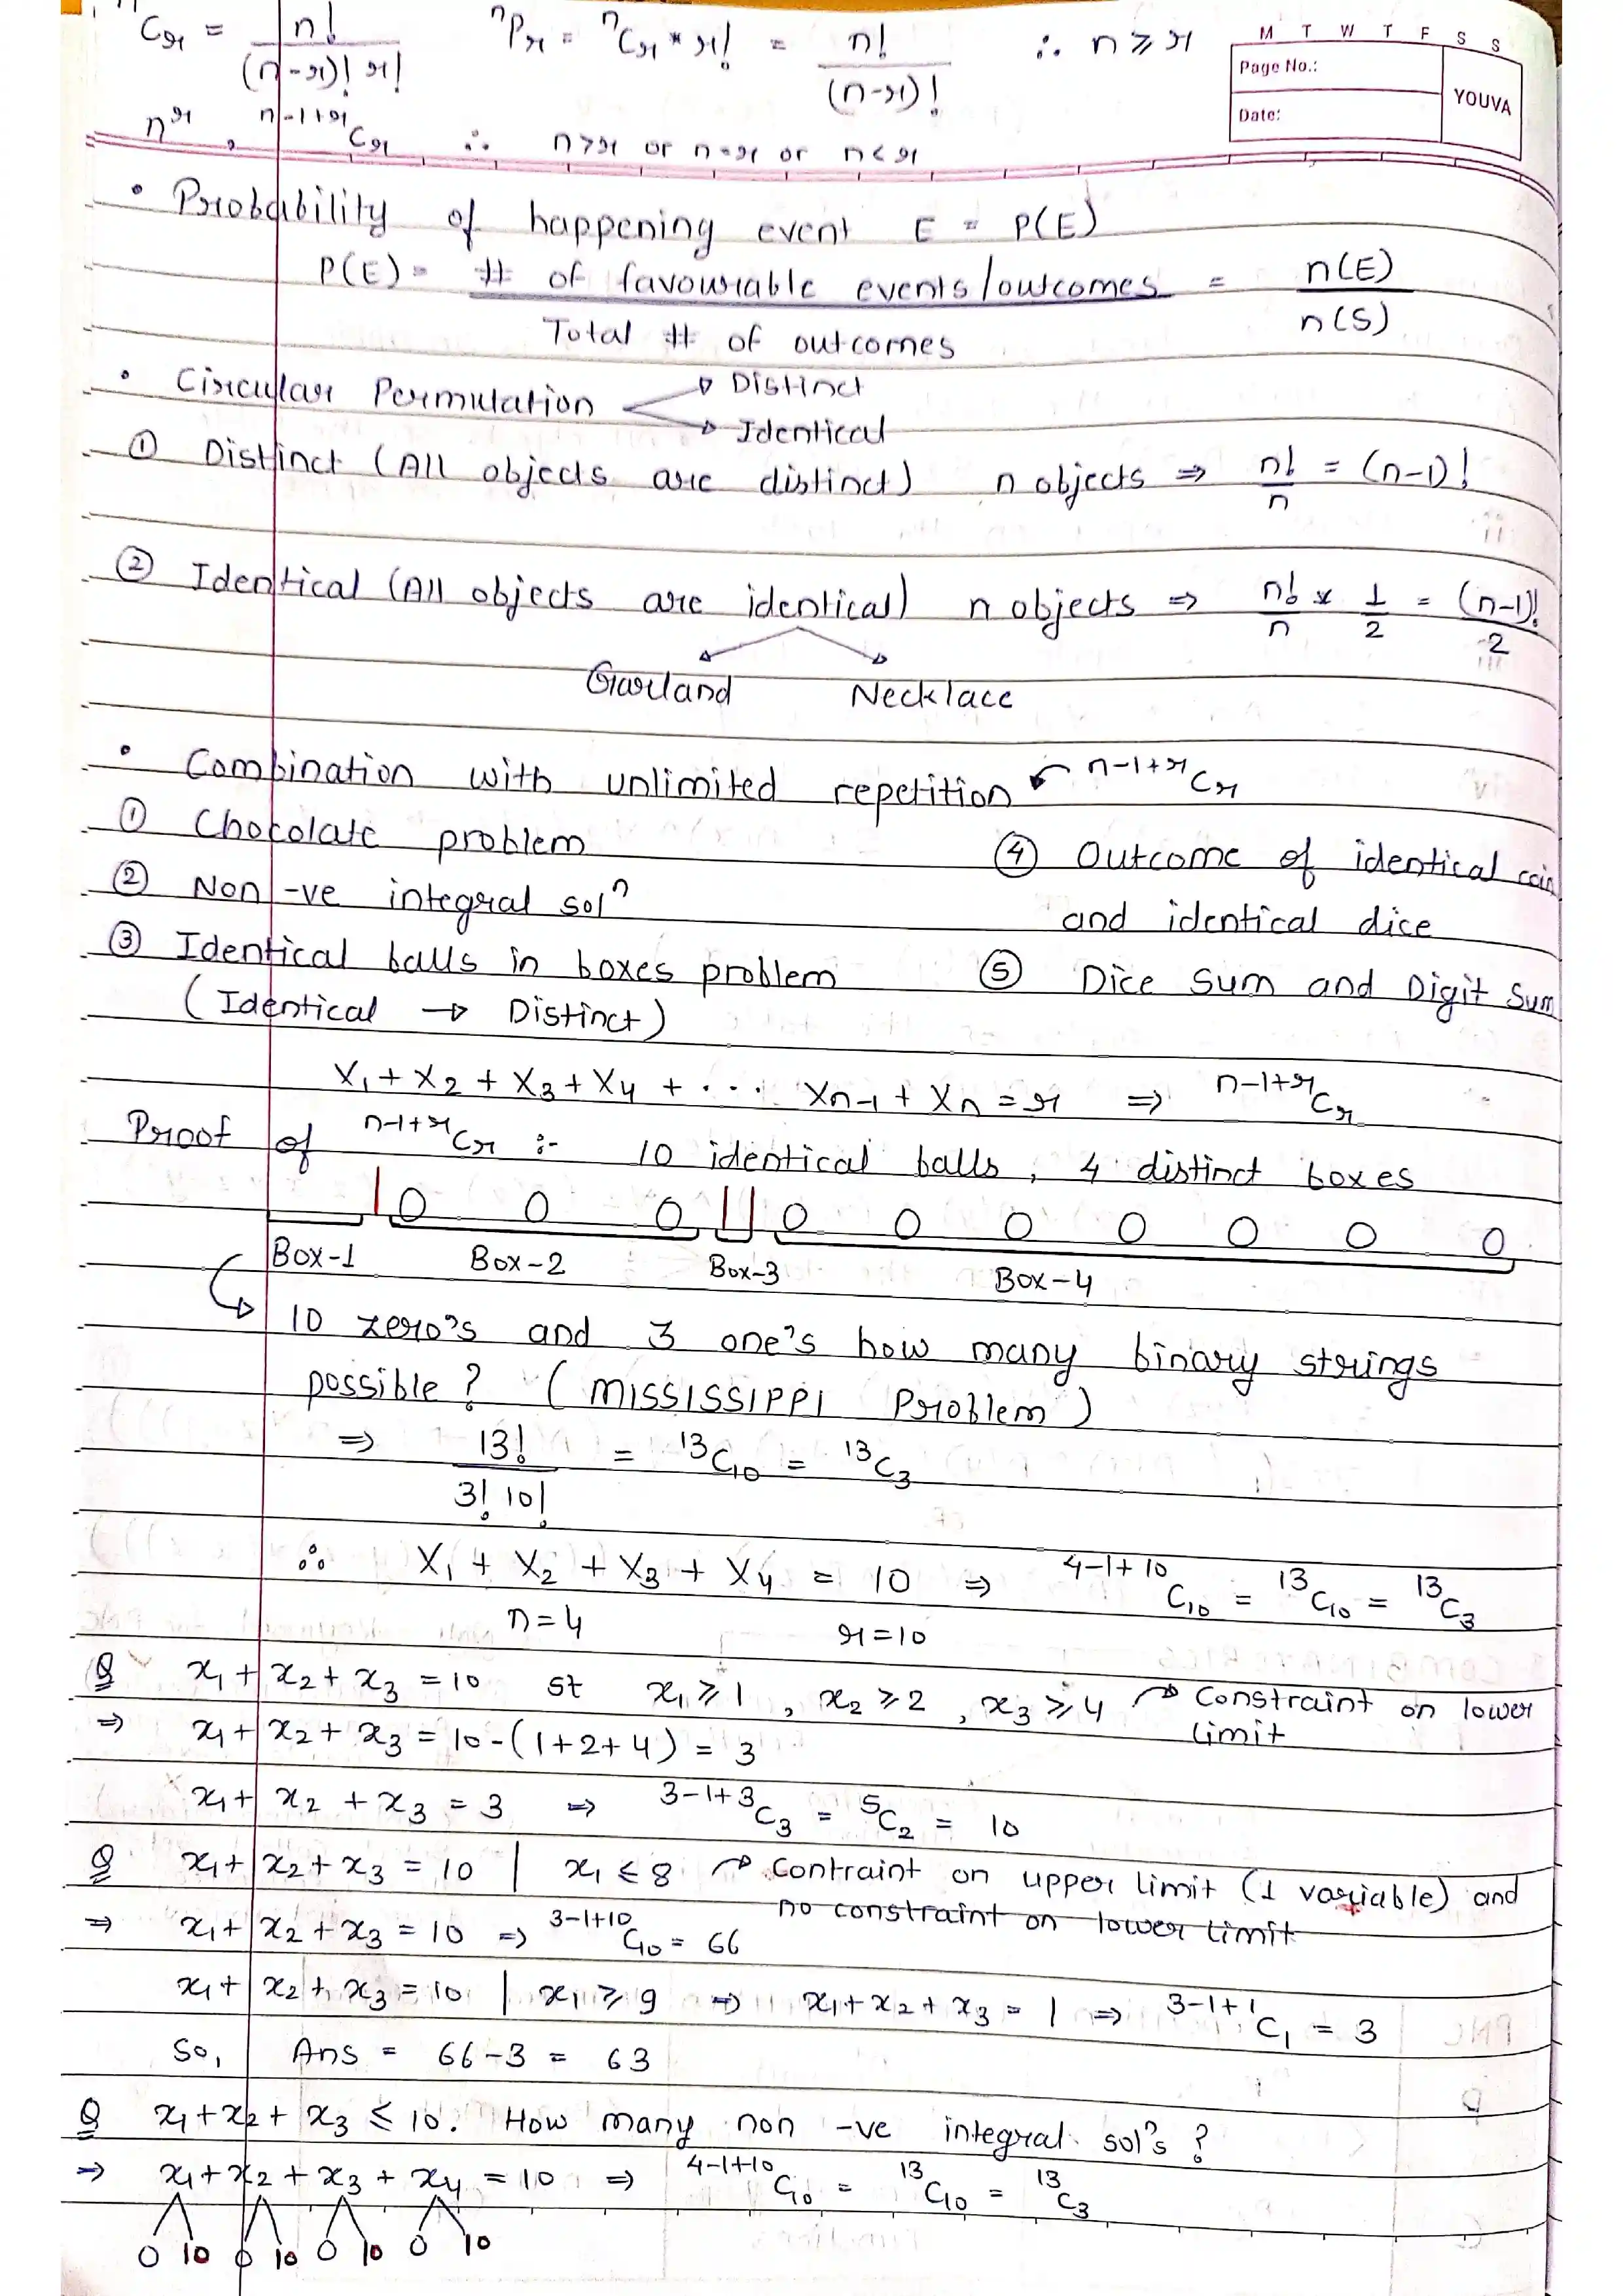 ⁿCr = n! / (n-r)! r!   ⁿPr = ⁿCr * r! = n! / (n-r)!   ∴ n ≥ r
M T W T F S S
Page No.:
Date:
YOUVA
n^r , ⁿ⁻¹⁺ʳCr ∴ n>r or n=r or n<r
• Probability of happening event E = P(E)
P(E) = # of favourable events/outcomes / Total # of outcomes = n(E) / n(S)
• Circular Permutation → Distinct
→ Identical
① Distinct (All objects are distinct) n objects ⇒ n!/n = (n-1)!
② Identical (All objects are identical) n objects ⇒ n!/n × 1/2 = (n-1)!/2
Garland Necklace
• Combination with unlimited repetition ↙ ⁿ⁻¹⁺ʳCr
① Chocolate problem
② Non -ve integral solⁿ
③ Identical balls in boxes problem
(Identical → Distinct)
④ Outcome of identical coin
and identical dice
⑤ Dice Sum and Digit Sum
X₁ + X₂ + X₃ + X₄ + .... Xn-1 + Xn = r ⇒ ⁿ⁻¹⁺ʳCr
Proof of ⁿ⁻¹⁺ʳCr :- 10 identical balls, 4 distinct boxes
| O O O | | O O O O O O O
Box-1 Box-2 Box-3 Box-4
→ 10 zero's and 3 one's how many binary strings
possible? (MISSISSIPPI Problem)
⇒ 13! / 3! 10! = ¹³C₁₀ = ¹³C₃
∴ X₁ + X₂ + X₃ + X₄ = 10 ⇒ ⁴⁻¹⁺¹⁰C₁₀ = ¹³C₁₀ = ¹³C₃
n=4 r=10
Q x₁ + x₂ + x₃ = 10 st x₁ ≥ 1, x₂ ≥ 2, x₃ ≥ 4 → Constraint on lower
limit
⇒ x₁ + x₂ + x₃ = 10-(1+2+4) = 3
x₁ + x₂ + x₃ = 3 ⇒ ³⁻¹⁺³C₃ = ⁵C₂ = 10
Q x₁ + x₂ + x₃ = 10 | x₁ ≤ 8 → Contraint on upper limit (1 variable) and
no constraint on lower limit
⇒ x₁ + x₂ + x₃ = 10 ⇒ ³⁻¹⁺¹⁰C₁₀ = 66
x₁ + x₂ + x₃ = 10 | x₁ ≥ 9 ⇒ x₁ + x₂ + x₃ = 1 ⇒ ³⁻¹⁺¹C₁ = 3
So, Ans = 66-3 = 63
Q x₁ + x₂ + x₃ ≤ 10. How many non -ve integral solⁿs?
⇒ x₁ + x₂ + x₃ + x₄ = 10 ⇒ ⁴⁻¹⁺¹⁰C₁₀ = ¹³C₁₀ = ¹³C₃
0 10 0 10 0 10 0 10